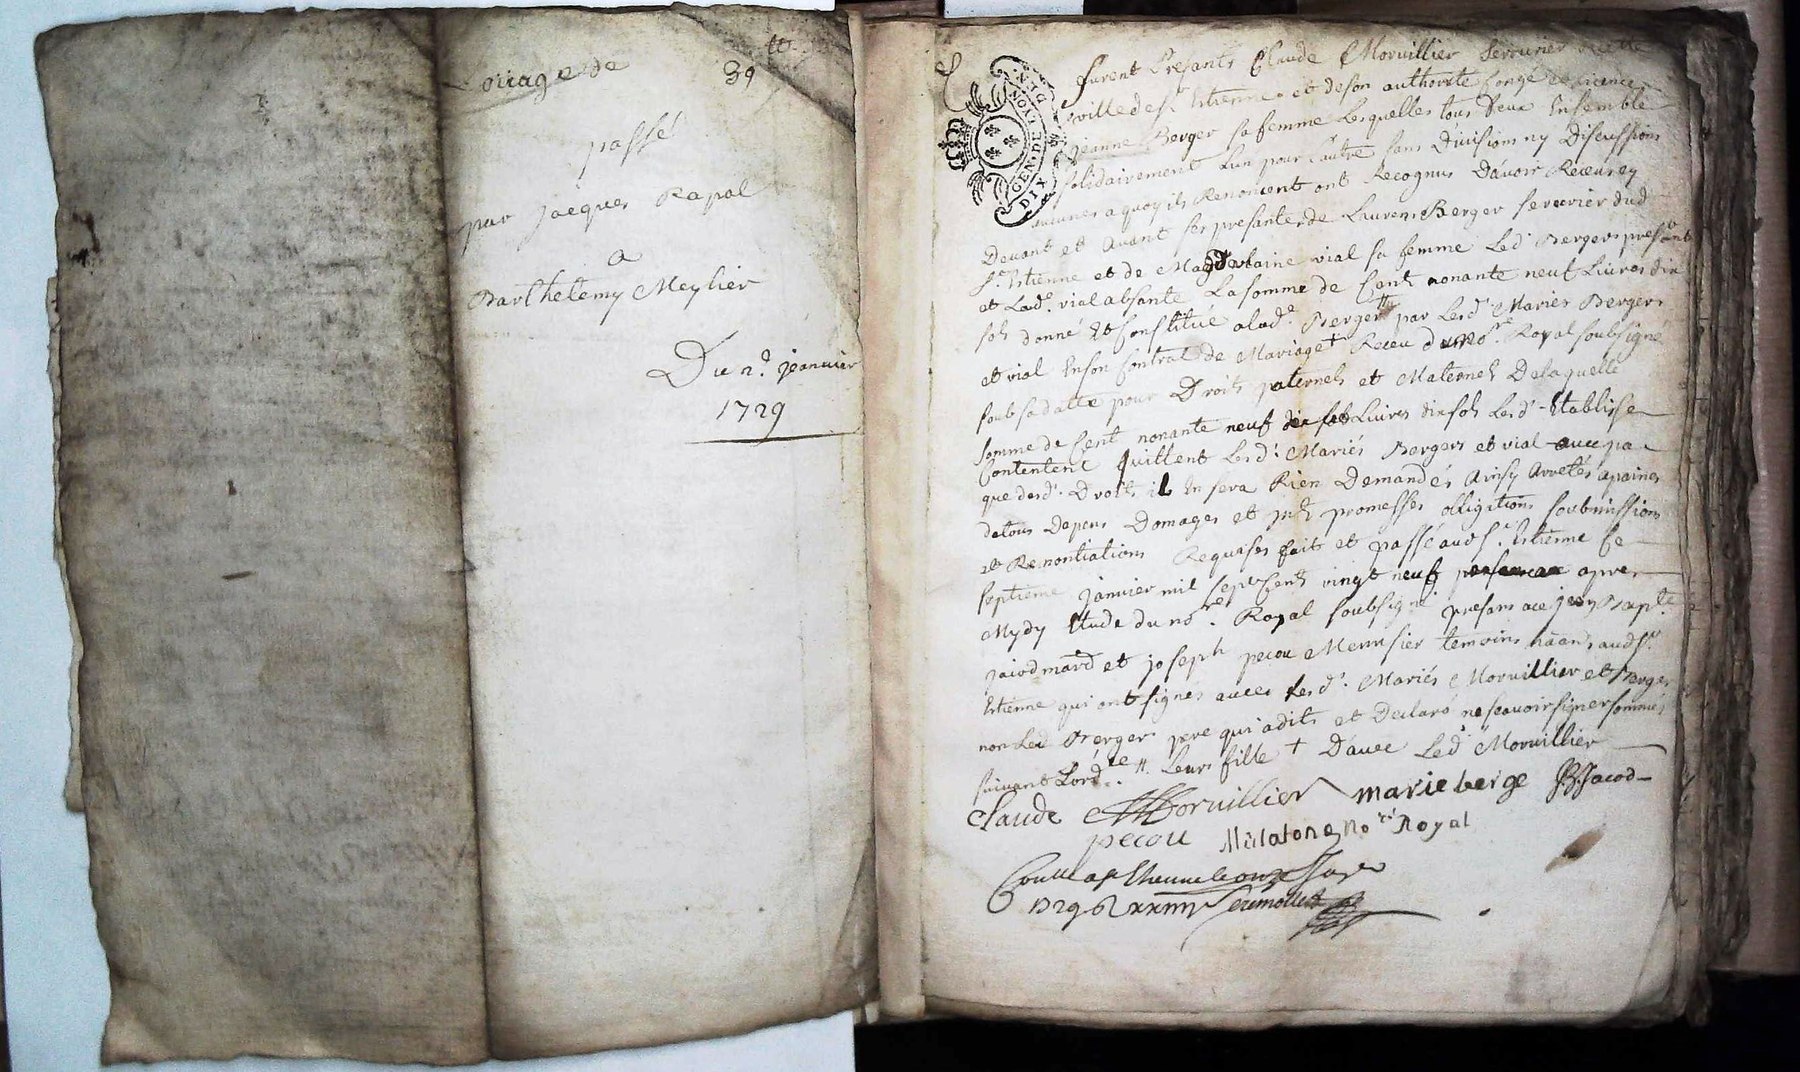 Loüage de
39
passé
par jacques Rapal
a
Barthelemy Meylier
Du 2e. jeanvier
1729
GEN. DE LION
DIX DEN
furent Presants Claude Morvillier serrurier
ville de st. Estienne et deson authorité Congé et licence
jeanne Berger sa femme Lesquelles tous Deux Ensemble
solidairement Lun pour Lautre sans Divisions ny Discussions
aucunes aquoy ils Renoncent ont Recognus D'avoir Receus ey
Devant et avant ses presantes de Laurens Berger serrurier dud
st. Estienne et de Magdelaine vial sa femme Led. Bergers presant
et Lad. vial absante La somme de Cent nonante neuf Livres dix
sols donné et Constitué a lad. Berger par Lesd. Mariés Bergers
et vial En son Contrat de Mariage + Receu du no.re Royal soubsigné
soub sa datte pour Droits paternels et Maternels De laquelle
somme de Cent nonante neuf Livres dix sols Lesd. Etablisse
Contentent quittent Lesd. Mariés Bergers et vial avec pa
que desd. Droits il En sera Rien Demandés Ainsy Arretés apaines
detous Depens Domages et promesses obligations soubmissions
et Renontiations Requises fait et passé aud st. Estienne Le
septieme janvier mil sept Cents vingt neuf apres
Mydy Etude du no.re Royal soubsigné presans ace jean Bapte.
et joseph pecou Menusier temoins haants aud st.
Estienne qui ont signés avec Lesd. Mariés Morvillier et Berger
non Led Berger pere qui adits et Declaré ne scavoir signer sommés
suivant Lord.re //. Leurs fille + D'avec Led Morvillier
Claude Morvillier marie berge JB Jacod
pecou Mulatone, No.re Royal
1729